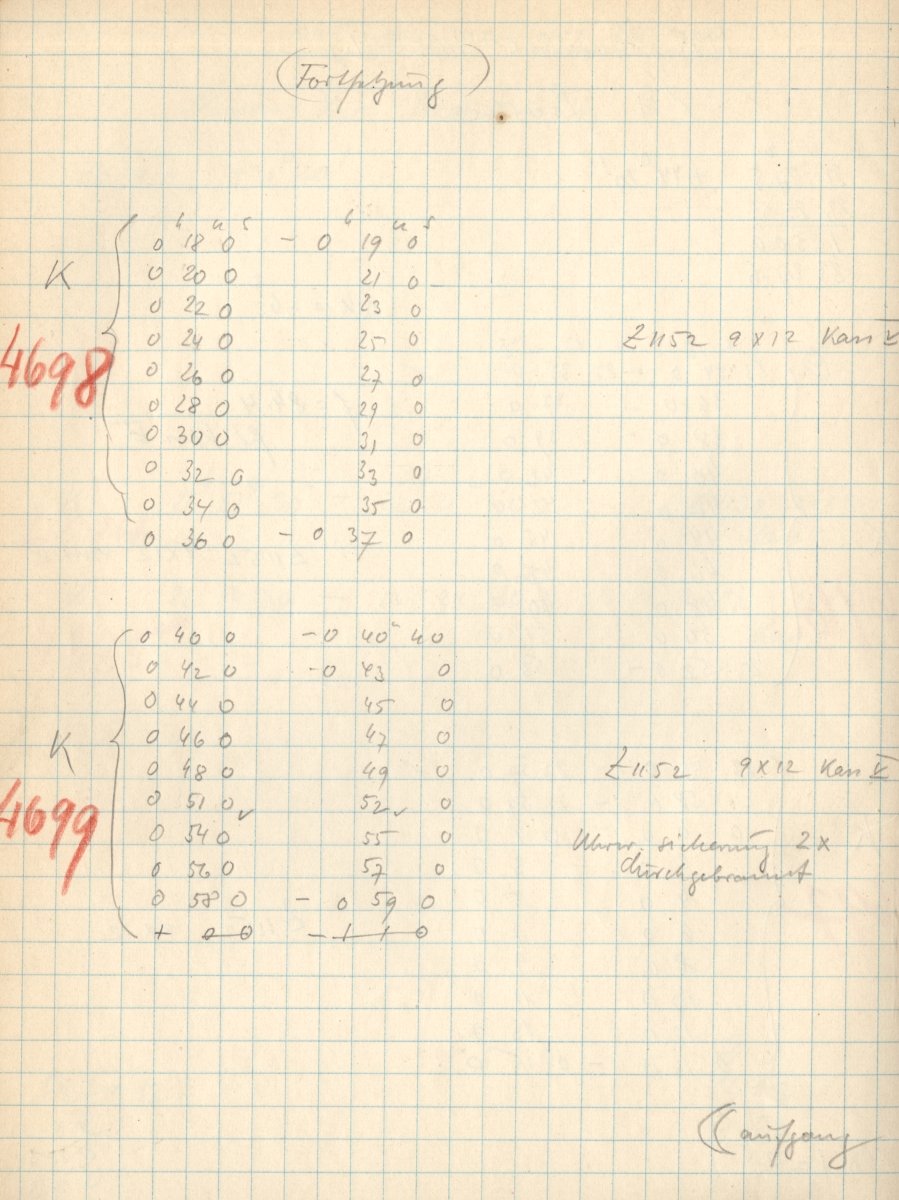 (Fortsetzung)
0ʰ 18ᵐ 0ˢ – 0ʰ 19ᵐ 0ˢ
K 0 20 0 21 0 –
0 22 0 23 0
4698 0 24 0 25 0 Z 1152 9 x 12 Kass V
0 26 0 27 0
0 28 0 29 0
0 30 0 31 0
0 32 0 33 0
0 34 0 35 0
0 36 0 – 0 37 0
0 40 0 – 0 40 40
0 42 0 – 0 43 0
0 44 0 45 0
K 0 46 0 47 0
0 48 0 49 0 Z 1152 9 x 12 Kass V
4699 0 51 0 ✓ 52 ✓ 0
0 54 0 55 0 Uhrw. sicherung 2 x
0 56 0 57 0 durchgebrannt
0 58 0 – 0 59 0
1 0 0 – 1 1 0
☾ aufgang